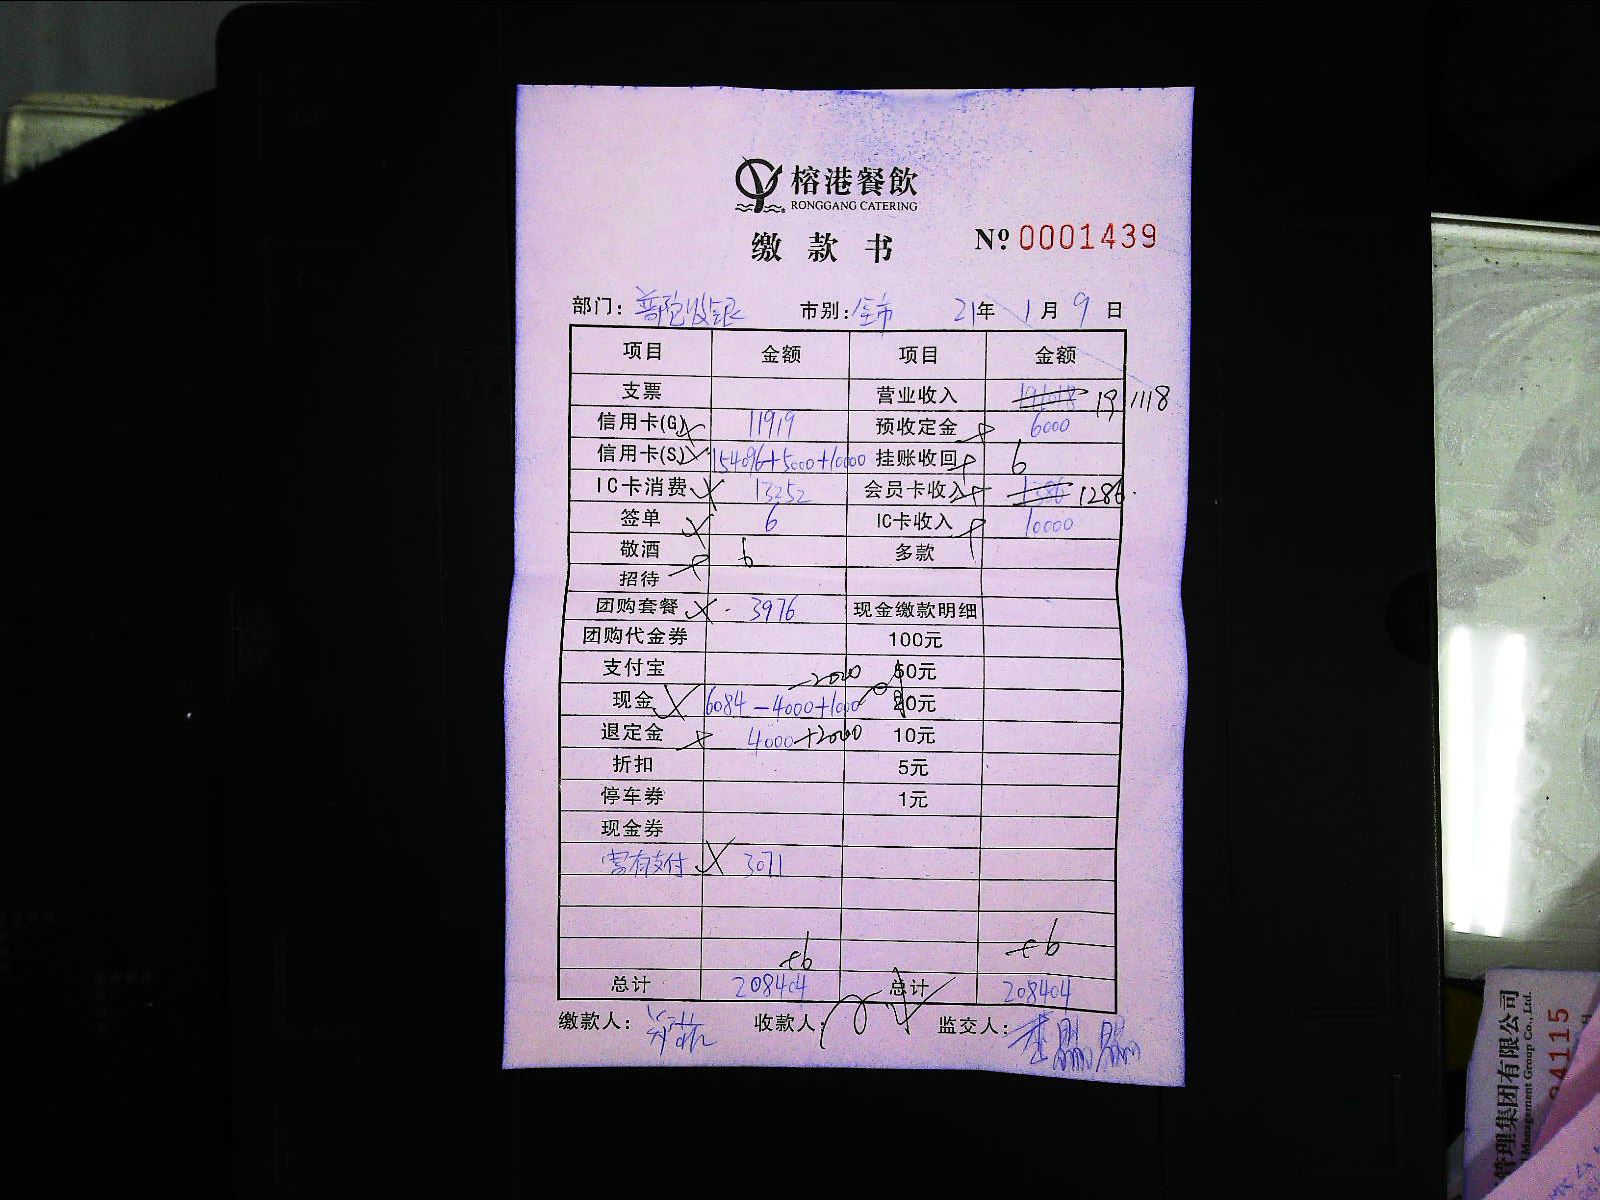 榕港餐飲
RONGGANG CATERING
缴款书 Nº 0001439
部门: 普陀收银 市别: 全市 21年 1月 9日
项目 金额 项目 金额
支票 营业收入 191118
信用卡(G) 11919 预收定金 6000
信用卡(S) 154096+5000+10000 挂账收回 6
IC卡消费 13252 会员卡收入 1286
签单 6 IC卡收入 10000
敬酒 6 多款
招待
团购套餐 3976 现金缴款明细
团购代金券 100元
支付宝 -2000 50元
现金 6084-4000+1000 20元
退定金 4000+2000 10元
折扣 5元
停车券 1元
现金券
富有支付 3071
+6 +6
总计 208404 总计 208404
缴款人: 收款人: 监交人:
管理集团有限公司
Management Group Co., Ltd.
94115